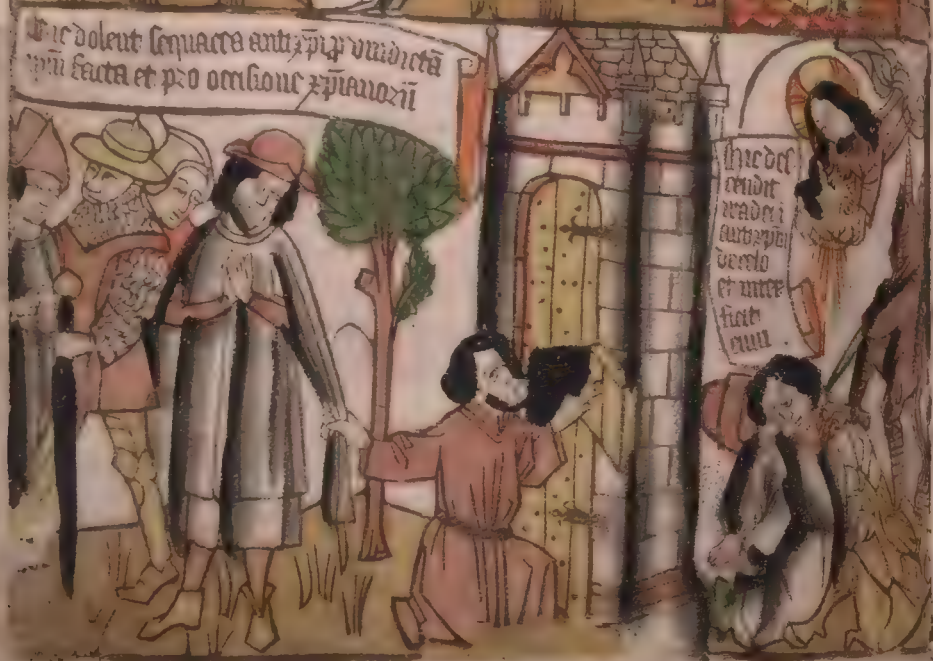 Hic dolent sequaces antixp̄i p vindictā
ip̄m facta et pro occisione xp̄ianorū
Hic des
cendit
antixpi
de celo
et inter
ficit
eum